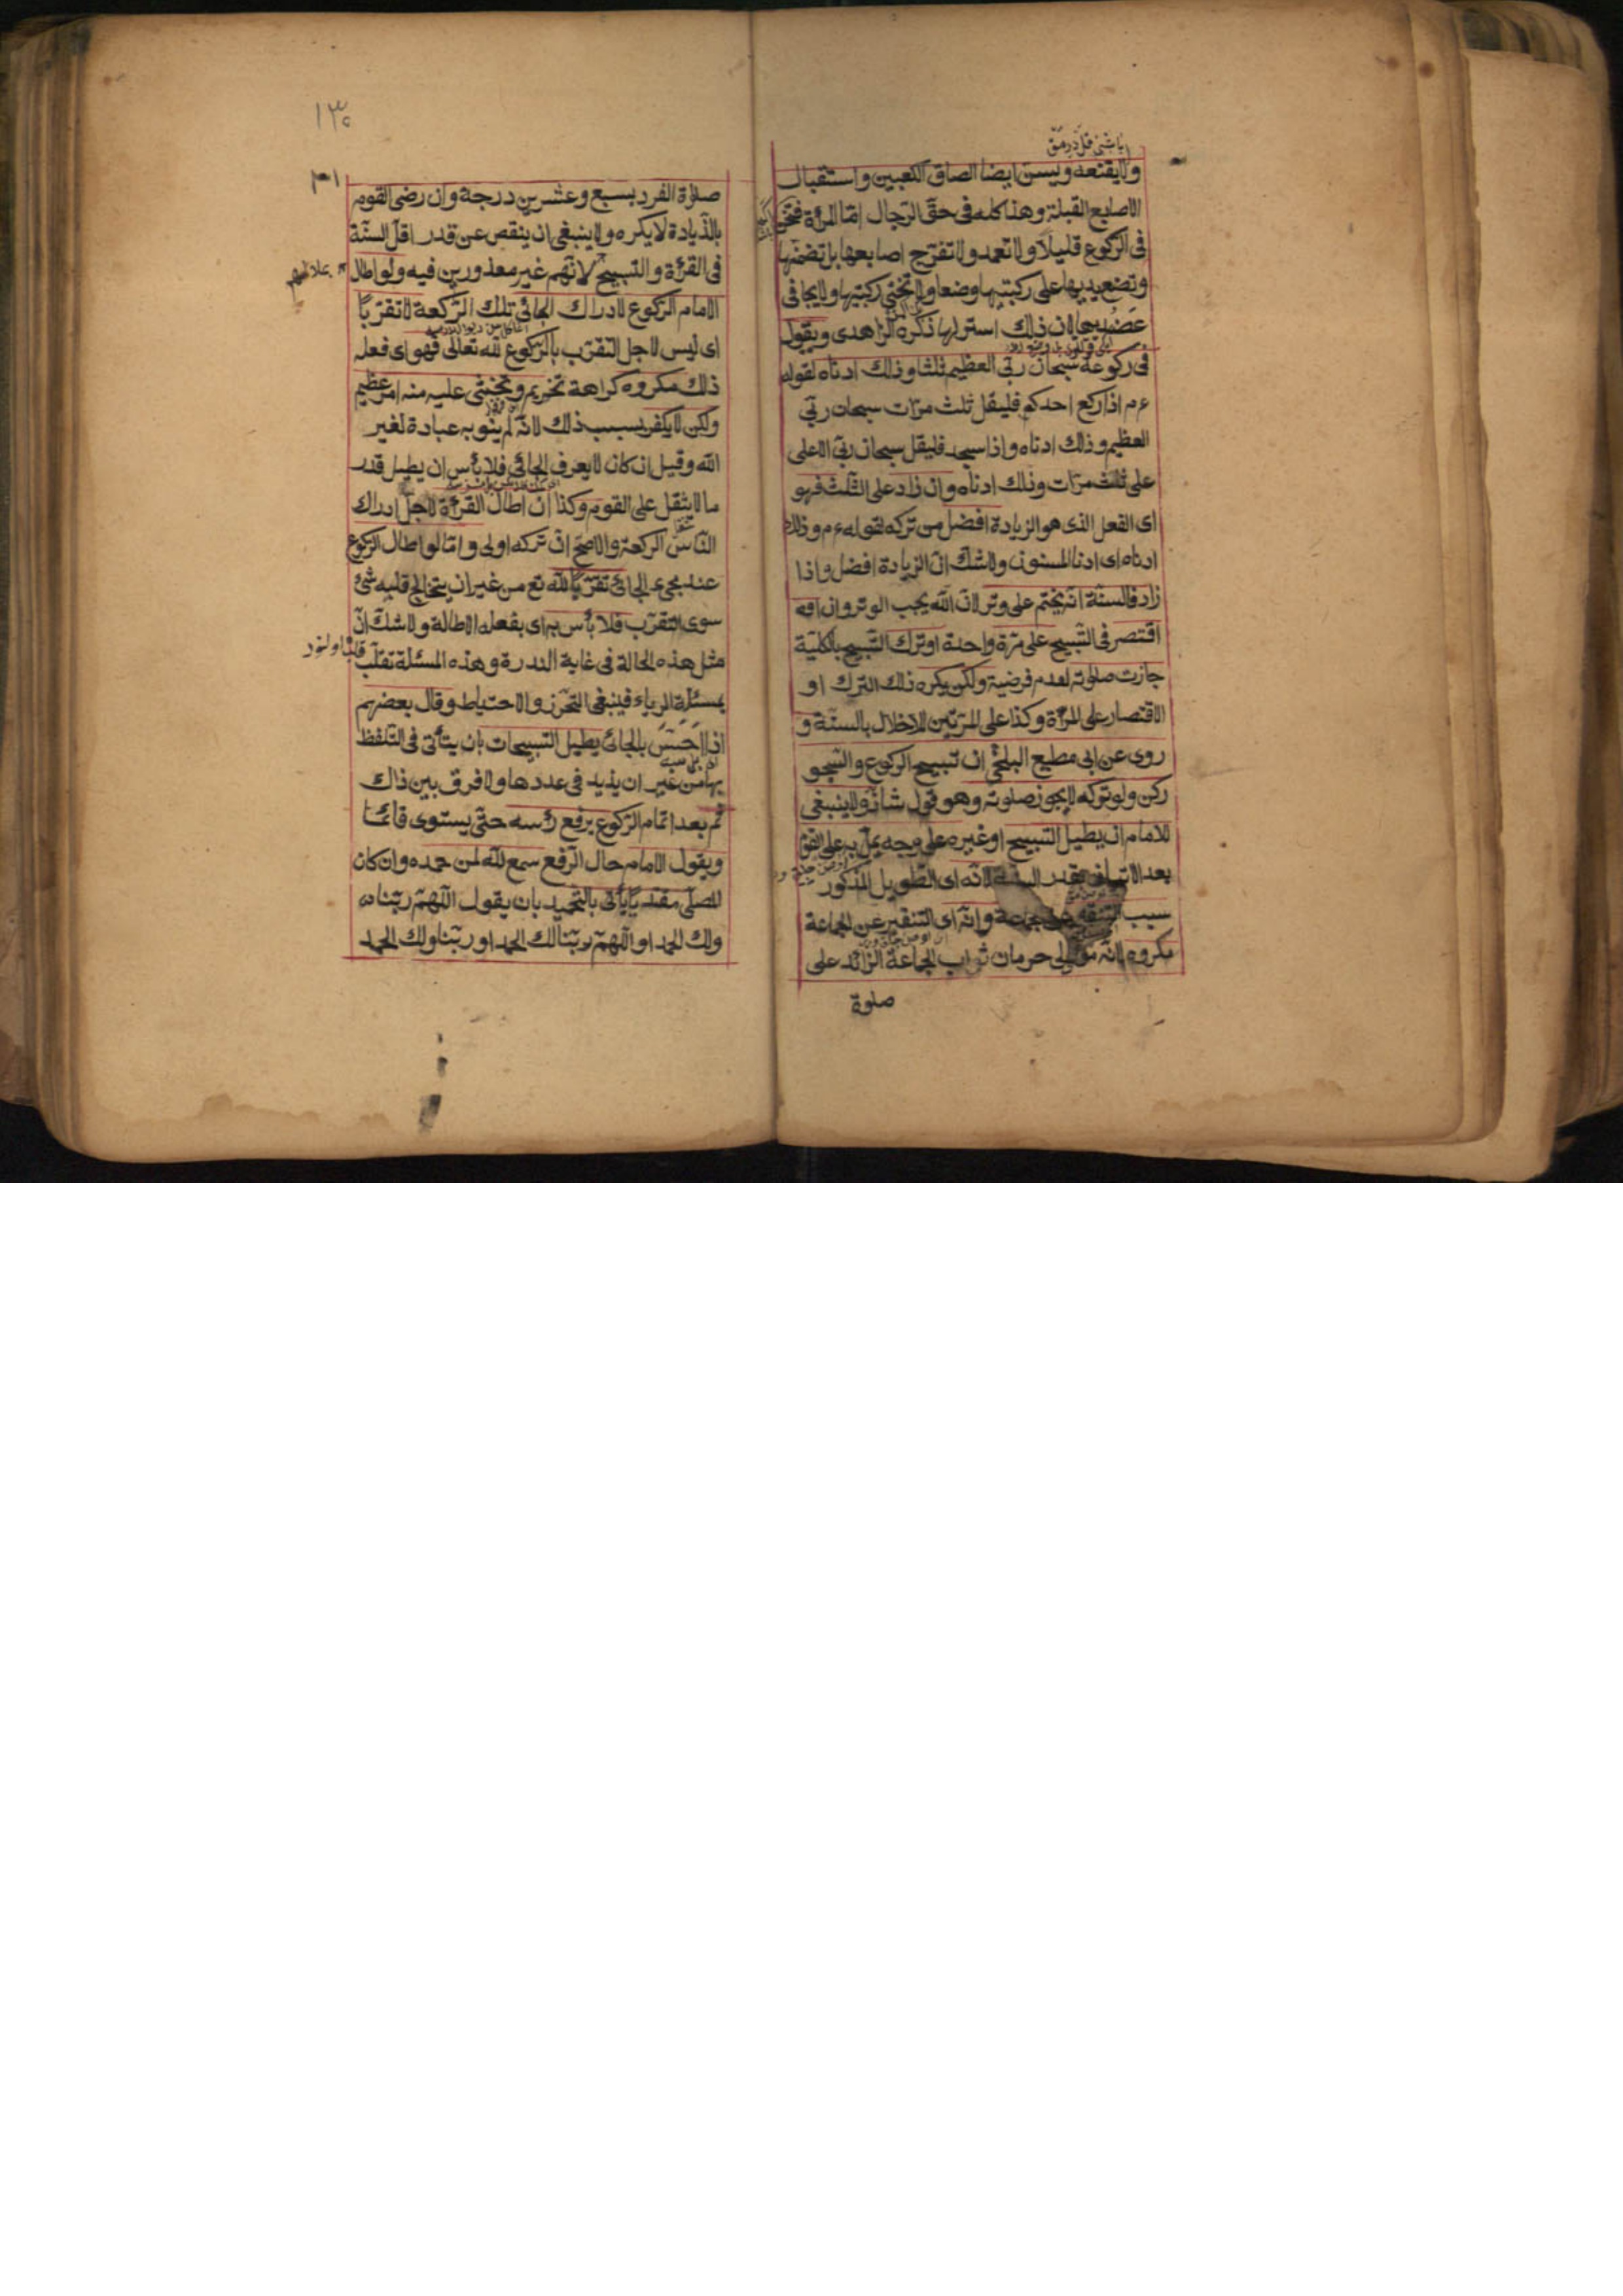 ولا يقنعه ويسن ايضا الصاق الكعبين واستقبال
الاصابع القبلة وهذا كله فى حق الرجال امّا المرأة فتنحنى
فى الركوع قليلاً ولا تعمد ولا تفرّج اصابعها بل تضمّها
وتضع يديها على ركبتيها وضعا ولا تحنى ركبتيها ولا يجافى
عضديها لان ذلك استر لها ذكره الزاهدى ويقول
فى ركوعه سبحان ربّى العظيم ثلثا وذلك ادناه لقوله
ءم اذا ركع احدكم فليقل ثلث مرّات سبحان ربّى
العظيم وذلك ادناه واذا سجد فليقل سبحان ربّى الاعلى
على ثلث مرّات وذلك ادناه وان زاد على الثلث فهو
اى الفعل الذى هو الزيادة افضل من تركه لقوله ءم وذلك
ادناه اى ادنا المسنون ولا شكّ انّ الزيادة افضل واذا
زاد فالسنّة ان يختم على وتر لانّ الله يحب الوتر وان
اقتصر فى التّسبيح على مرّة واحدة او ترك التّسبيح بالكليّة
جازت صلوته لعدم فرضيته ولكن يكره ذلك الترك او
الاقتصار على المرّة وكذا على المرّتين للاخلال بالسنّة و
روى عن ابى مطيع البلخى ان تسبيح الركوع والسّجو
ركن ولو تركه لا يجوز صلوته وهو قول شاذّ ولا ينبغى
للامام ان يطيل التسبيح او غيره على وجه يملّ به على القوم
بعد الاتيان بقدر السنّة لانّه اى التّطويل المذكور
سبب التنفير عن الجماعة وانّه اى التنفير عن الجماعة
مكروه لانّه الى حرمان ثواب الجماعة الزائد على
صلوة
١٣٠
صلاة الفرد بسبع وعشرين درجة وان رضى القوم
بالذّيادة لا يكره ولا ينبغى ان ينقص عن قدر اقلّ السنّة
فى القرأة والتسبيح لانّهم غير معذورين فيه ولو اطال
الامام الرّكوع لادراك الجائى تلك الرّكعة لا تقرّبًا
اى ليس لاجل التقرّب بالرّكوع لله تعالى فهو اى فعله
ذلك مكروه كراهة تحريم ويخشى عليه منه امر عظيم
ولكن لا يكفر بسبب ذلك لانّه لم ينو به عبادة لغير
الله وقيل ان كان لا يعرف الجائى فلا بأس ان يطيل قدر
ما لا يثقل على القوم وكذا ان اطال القرأة لاجل ادراك
النّاس الركعة والاصحّ انّ تركه اولى وامّا لو اطال الركوع
عند مجىء الجائى تقرّبًا لله تع من غير ان يتخالج قلبه شئ
سوى التقرّب فلا بأس به اى بفعله الاطالة ولا شكّ انّ
مثل هذه الحالة فى غاية الندرة وهذه المسئلة تقلّب
بمسئلة الرياء فينبغى التّحرّز والاحتياط وقال بعضهم
اذا احسّ بالجائى يطيل التسبيحات بان يتأنّى فى التلفّظ
بها من غير ان يذيد فى عددها ولا فرق بين ذاك
ثم بعد اتمام الرّكوع يرفع رأسه حتّى يستوى قائمًا
ويقول الامام حال الرّفع سمع الله لمن حمده وان كان
المصلّى مقتديًا يأتى بالتّحميد بان يقول اللّهمّ ربّنا
ولك الحمد او اللّهمّ ربّنا لك الحمد او ربّنا ولك الحمد